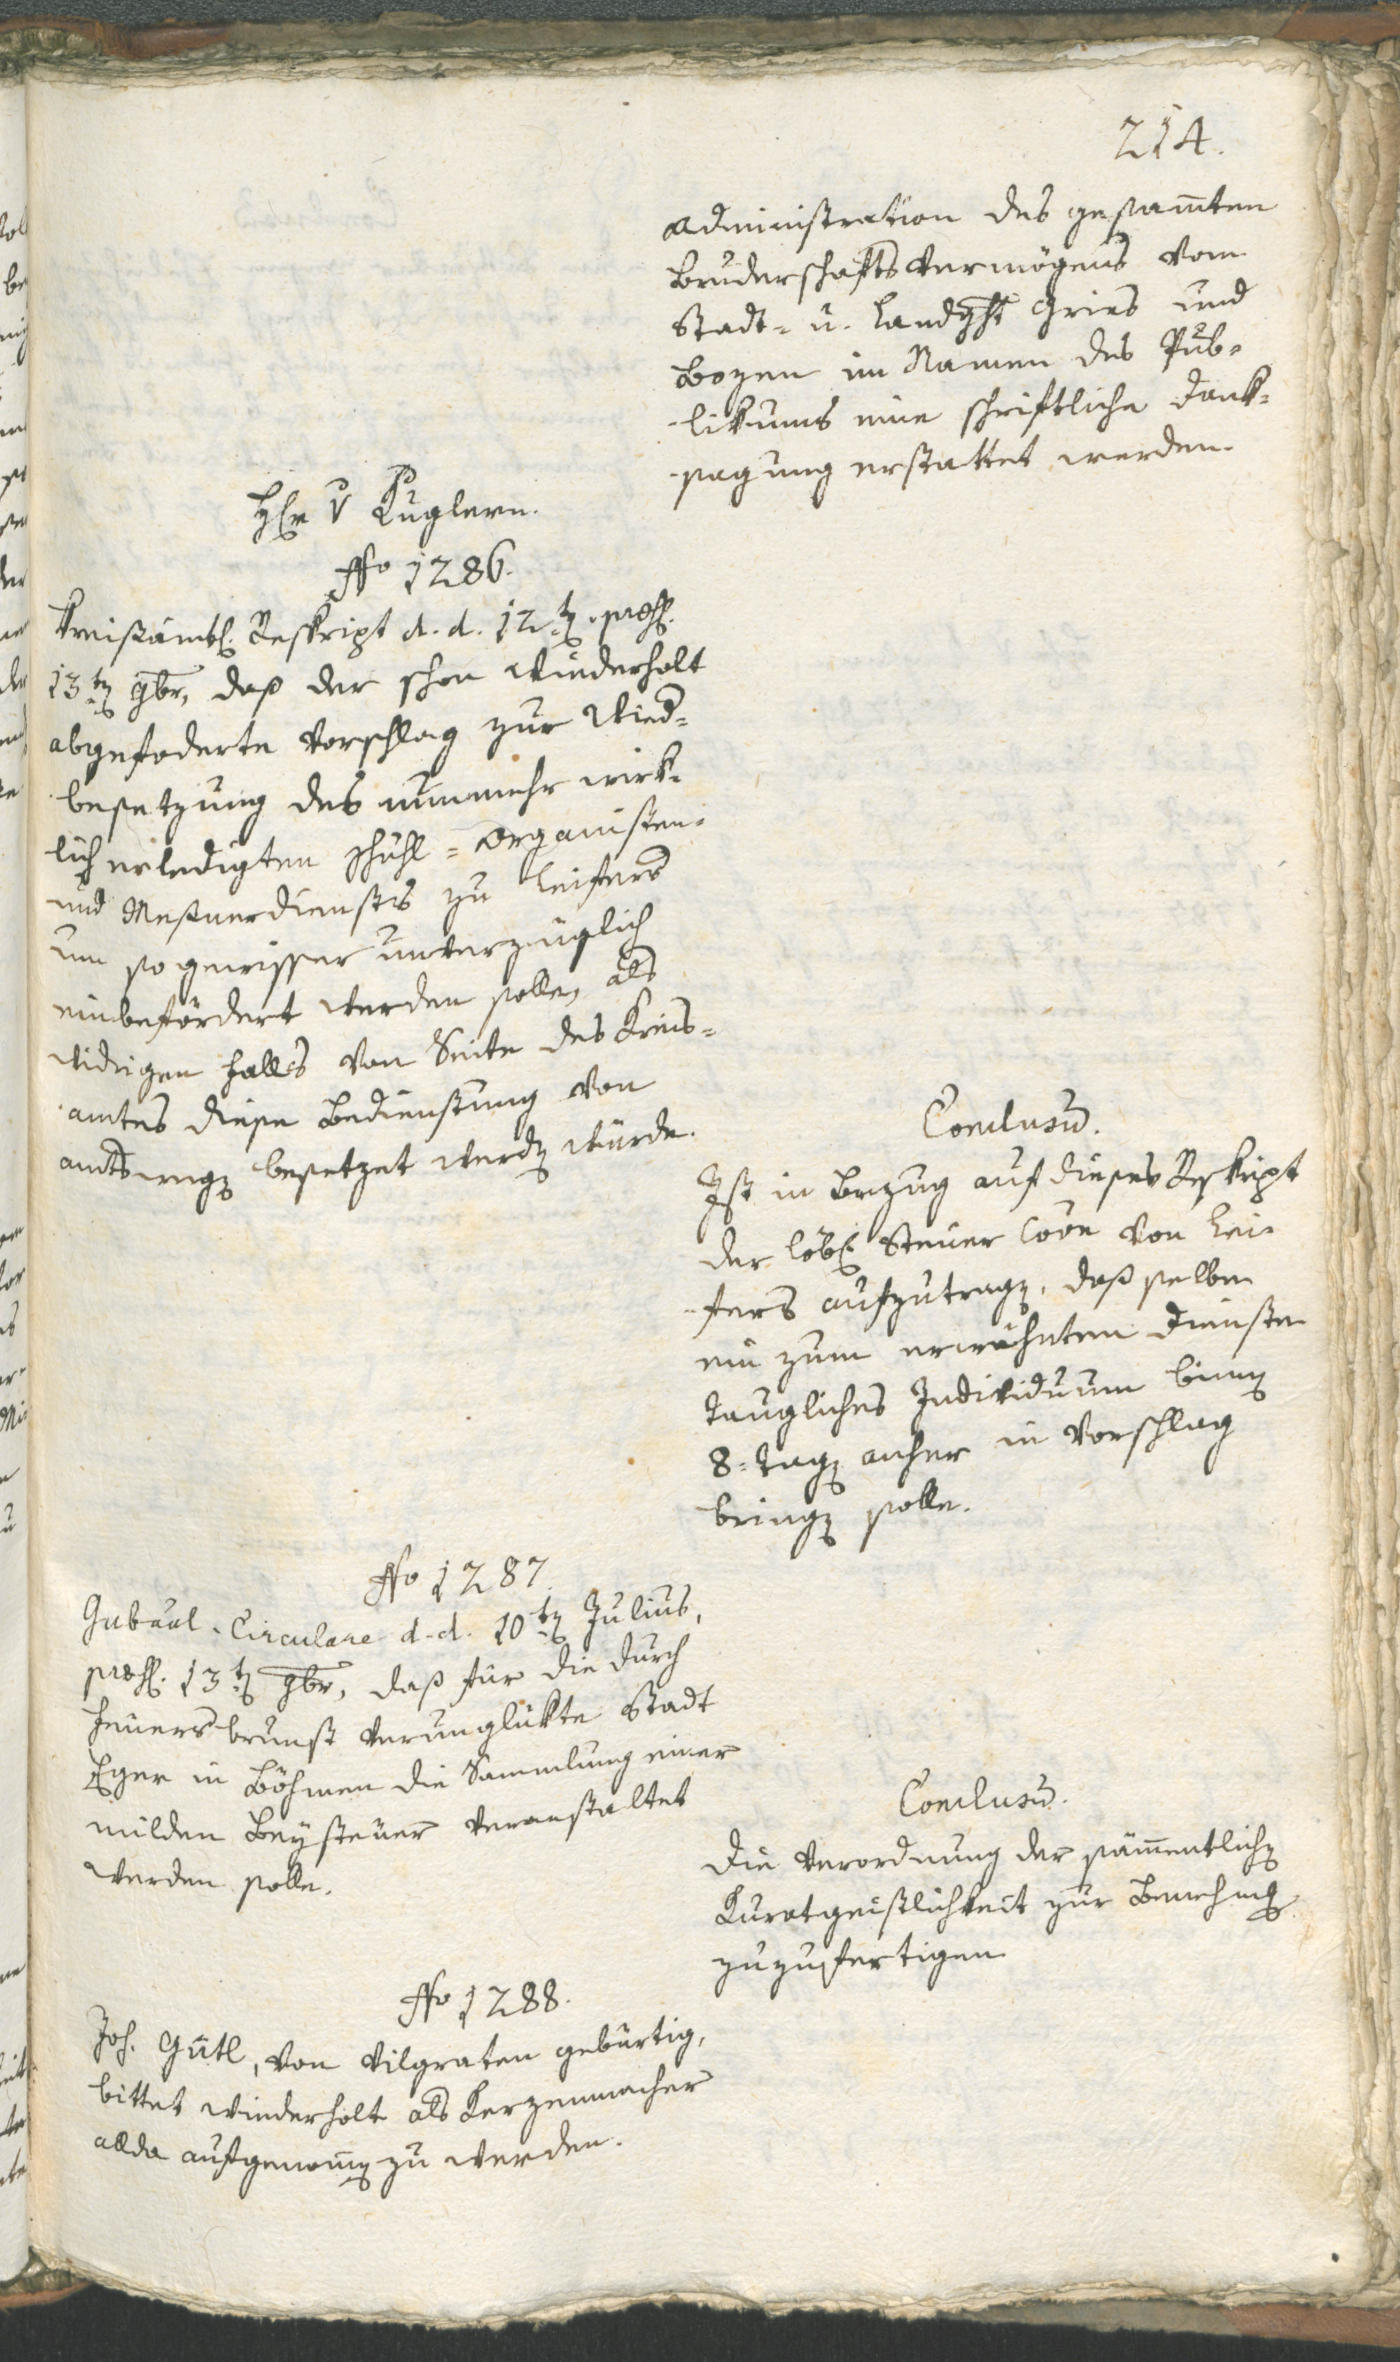 214.
Administration des gesam̅ten
Bruderschaftsvermögens vom
Stadt- u. Landght Gries und
Bozen im Namen des Pub-
likums eine schriftliche Dank-
sagung erstattet werden.
Hr v Kuglern.
Nro 1286.
Kreisämtl. Reskript d. d. 12tn. praes.
13tn 9br, daß der schon wiederholt
abgefoderte Vorschlag zur Wied-
besetzung des nunmehr wirk-
lich erledigten Schuhl- Organisten-
und Meßnerdienstes zu Leifers
um so gewisser unverzüglich
einbefördert werden solle, als
widrigen Falls von Seite des Kreis-
amtes diese Bedienstung von
amtswegn besetzet werdn würde.
Conclusū.
Ist in Bezug auf dieses Reskript
der löbl. Steuer Coon von Lei-
fers aufzutragn, daß selbe
ein zum erwähnten Dienste
taugliches Individuum binn
8. Tagn anher in Vorschlag
bringn solle.
Nro 1287.
Gubaal-Circulare d. d. 10tn Julius,
praes. 13tn 9br, daß für die durch
Feuersbrunst verunglükte Stadt
Eger in Böhmen die Sammlung einer
milden Beysteuer veranstaltet
werden solle.
Conclusū.
Die Verordnung der säm̅entlichn
Kuratgeistlichkeit zur Benehmg
zuzufertigen
Nro 1288.
Joh. Gutl, von Vilgraten gebürtig,
bittet wiederholt als Kerzenmacher
allda aufgenom̅n zu werden.